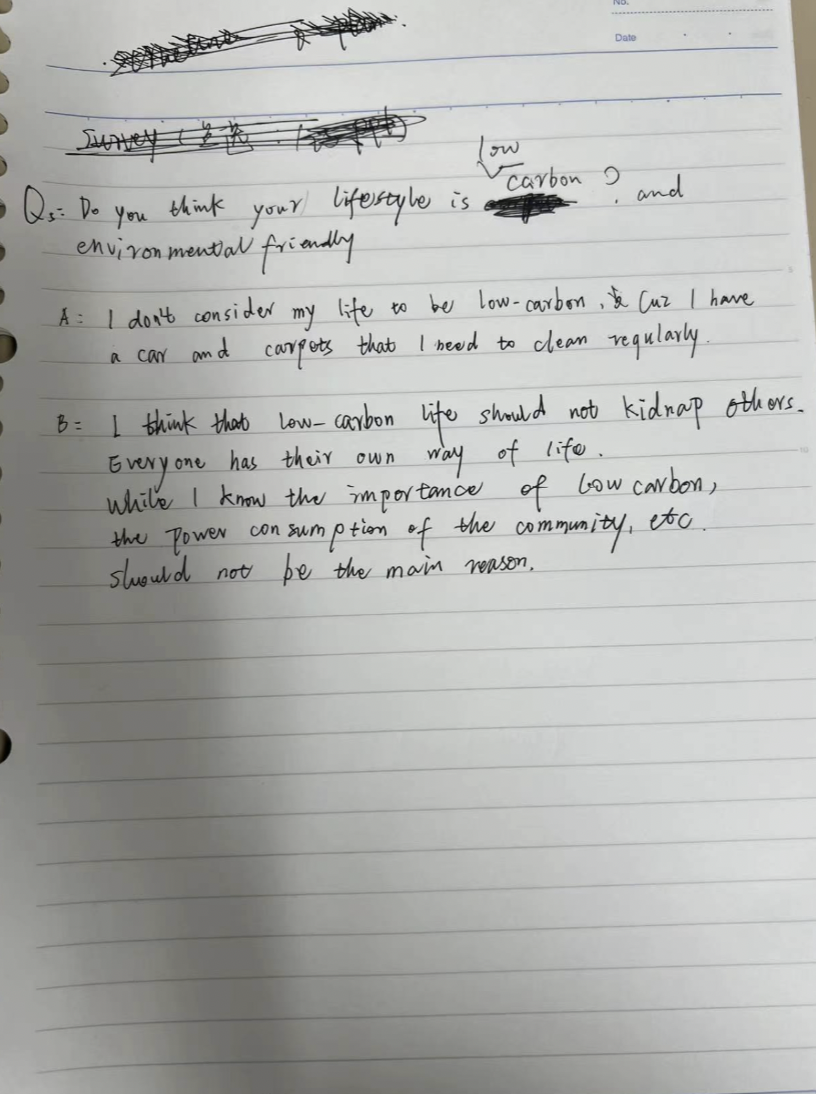 No.
Date
Survey
low
Q3: Do you think your lifestyle is carbon ? and
environmental friendly
A: I don't consider my life to be low-carbon, Cuz I have
a car and carpets that I need to clean regularly.
B: I think that low-carbon life should not kidnap others.
Everyone has their own way of life.
While I know the importance of low carbon,
the power consumption of the community, etc.
should not be the main reason.